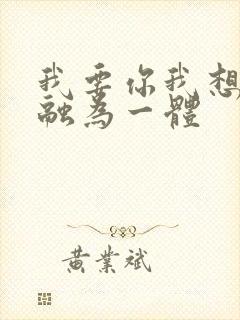 我要你我想
融為一體
黃業斌